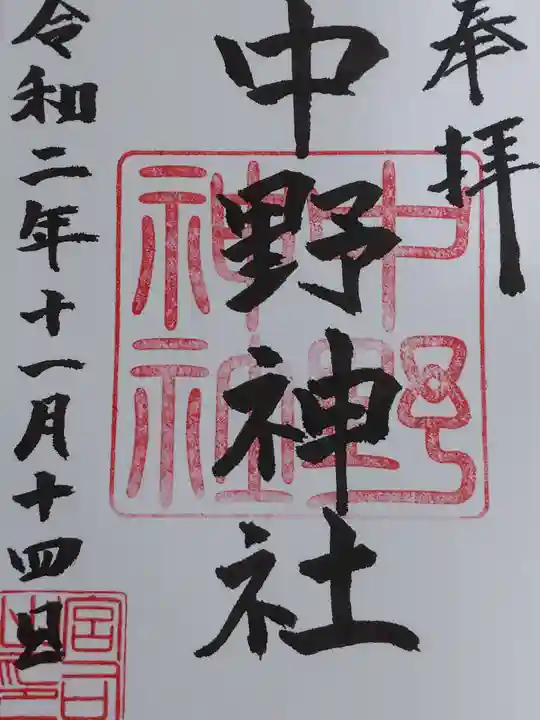 奉拝
中野神社
中野
神社
令和二年十一月十四日
宮司
之印